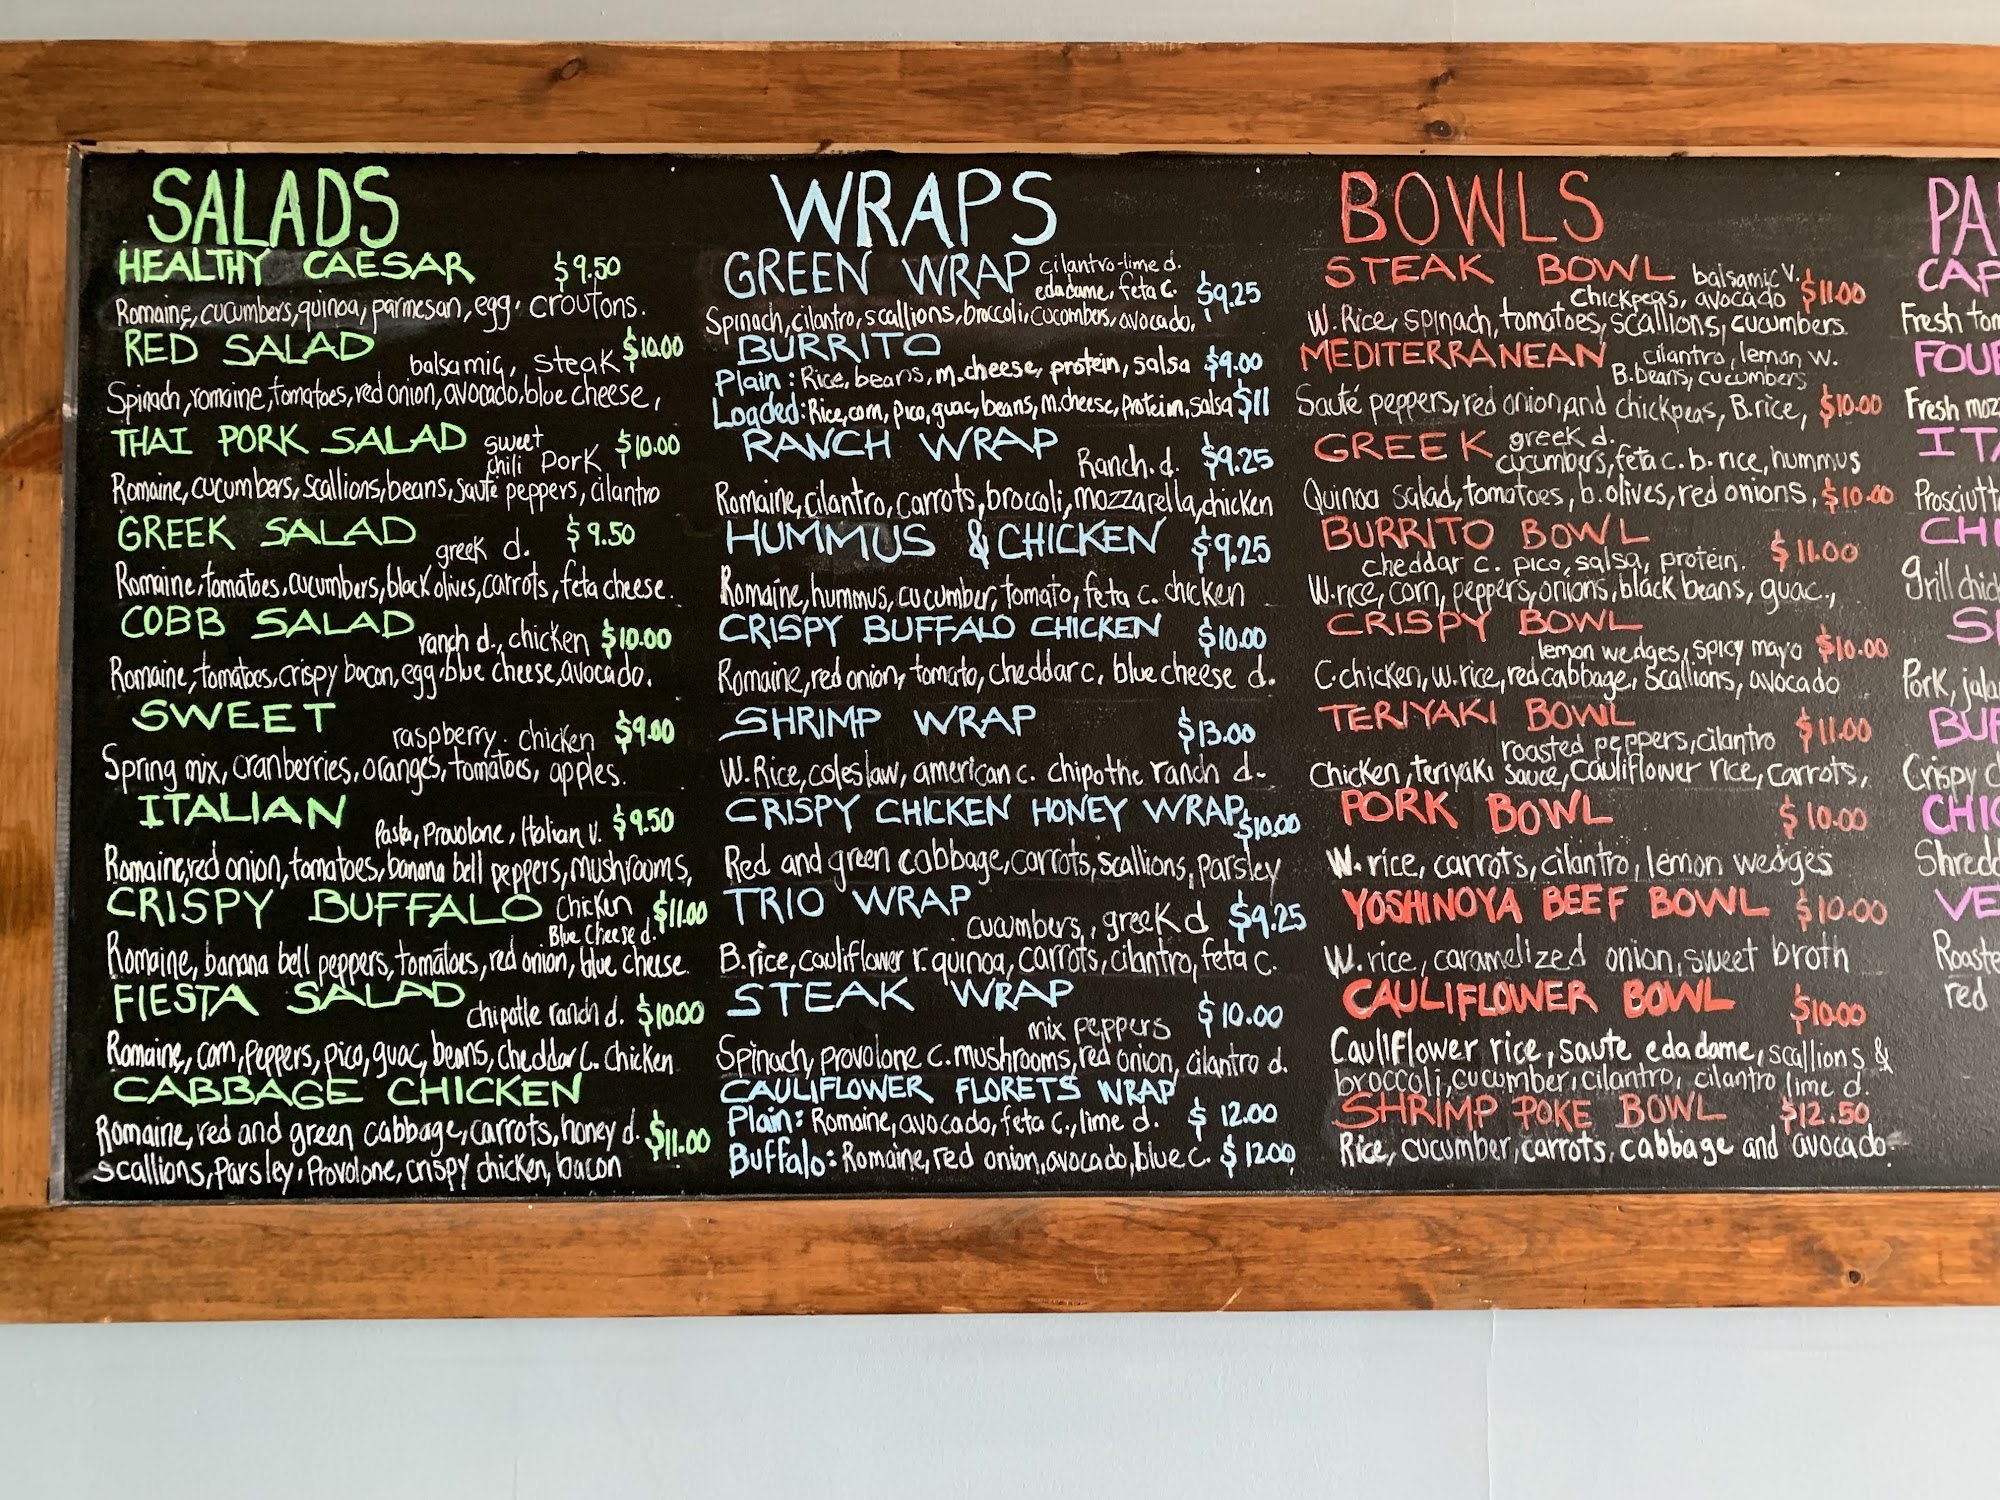 SALADS
HEALTHY CAESAR $9.50
Romaine, cucumbers, quinoa, parmesan, egg, croutons.
RED SALAD balsamic, steak $10.00
Spinach, romaine, tomatoes, red onion, avocado, blue cheese,
THAI PORK SALAD sweet chili pork $10.00
Romaine, cucumbers, scallions, beans, sauté peppers, cilantro
GREEK SALAD greek d. $9.50
Romaine, tomatoes, cucumbers, black olives, carrots, feta cheese.
COBB SALAD ranch d., chicken $10.00
Romaine, tomatoes, crispy bacon, egg, blue cheese, avocado.
SWEET raspberry. chicken $9.00
Spring mix, cranberries, oranges, tomatoes, apples.
ITALIAN Pasta, Provolone, Italian v. $9.50
Romaine, red onion, tomatoes, banana bell peppers, mushrooms,
CRISPY BUFFALO Chicken $11.00
Blue Cheese d.
Romaine, banana bell peppers, tomatoes, red onion, blue cheese.
FIESTA SALAD chipotle ranch d. $10.00
Romaine, corn, peppers, pico, guac, beans, cheddar c. chicken
CABBAGE CHICKEN
Romaine, red and green cabbage, carrots, honey d. $11.00
scallions, Parsley, Provolone, crispy chicken, bacon
WRAPS
GREEN WRAP cilantro-lime d.
edadame, feta c. $9.25
Spinach, cilantro, scallions, broccoli, cucombers, avocado,
BURRITO
Plain: Rice, beans, m.cheese, protein, salsa $9.00
Loaded: Rice, corn, pico, guac, beans, m.cheese, protein, salsa $11
RANCH WRAP Ranch. d. $9.25
Romaine, cilantro, carrots, broccoli, mozzarella, chicken
HUMMUS & CHICKEN $9.25
Romaine, hummus, cucumber, tomato, feta c. chicken
CRISPY BUFFALO CHICKEN $10.00
Romaine, red onion, tomato, cheddar c, blue cheese d.
SHRIMP WRAP $13.00
W.Rice, coleslaw, american c. chipothe ranch d.
CRISPY CHICKEN HONEY WRAP $10.00
Red and green cabbage, carrots, scallions, parsley
TRIO WRAP cucumbers, greek d $9.25
B.rice, cauliflower r. quinoa, carrots, cilantro, feta c.
STEAK WRAP mix peppers $10.00
Spinach, provolone c. mushrooms, red onion, cilantro d.
CAULIFLOWER FLORETS WRAP
Plain: Romaine, avocado, feta c., lime d. $12.00
Buffalo: Romaine, red onion, avocado, blue c. $12.00
BOWLS
STEAK BOWL balsamic v.
chickpeas, avocado $11.00
W. Rice, spinach, tomatoes, scallions, cucumbers.
MEDITERRANEAN cilantro, lemon w.
B.beans, cucumbers
Sauté peppers, red onion, and chickpeas, B.rice, $10.00
GREEK greek d.
cucumbers, feta c. b. rice, hummus
Quinoa salad, tomatoes, b.olives, red onions, $10.00
BURRITO BOWL $11.00
cheddar c. pico, salsa, protein.
W.rice, corn, peppers, onions, black beans, guac.,
CRISPY BOWL
lemon wedges, spicy mayo $10.00
C.chicken, w.rice, red cabbage, scallions, avocado
TERIYAKI BOWL
roasted peppers, cilantro $11.00
Chicken, teriyaki sauce, cauliflower rice, carrots,
PORK BOWL $10.00
W. rice, carrots, cilantro, lemon wedges
YOSHINOYA BEEF BOWL $10.00
W. rice, caramelized onion, sweet broth
CAULIFLOWER BOWL $10.00
Cauliflower rice, saute edadame, scallions &
broccoli, cucumber, cilantro, cilantro lime d.
SHRIMP POKE BOWL $12.50
Rice, cucumber, carrots, cabbage and avocado.
PA
CAP
Fresh tom
FOU
Fresh moz
ITA
Prosciutt
CHI
Grill chic
S
Pork, jala
BUF
Crispy c
CHIC
Shredd
VE
Roaste
red